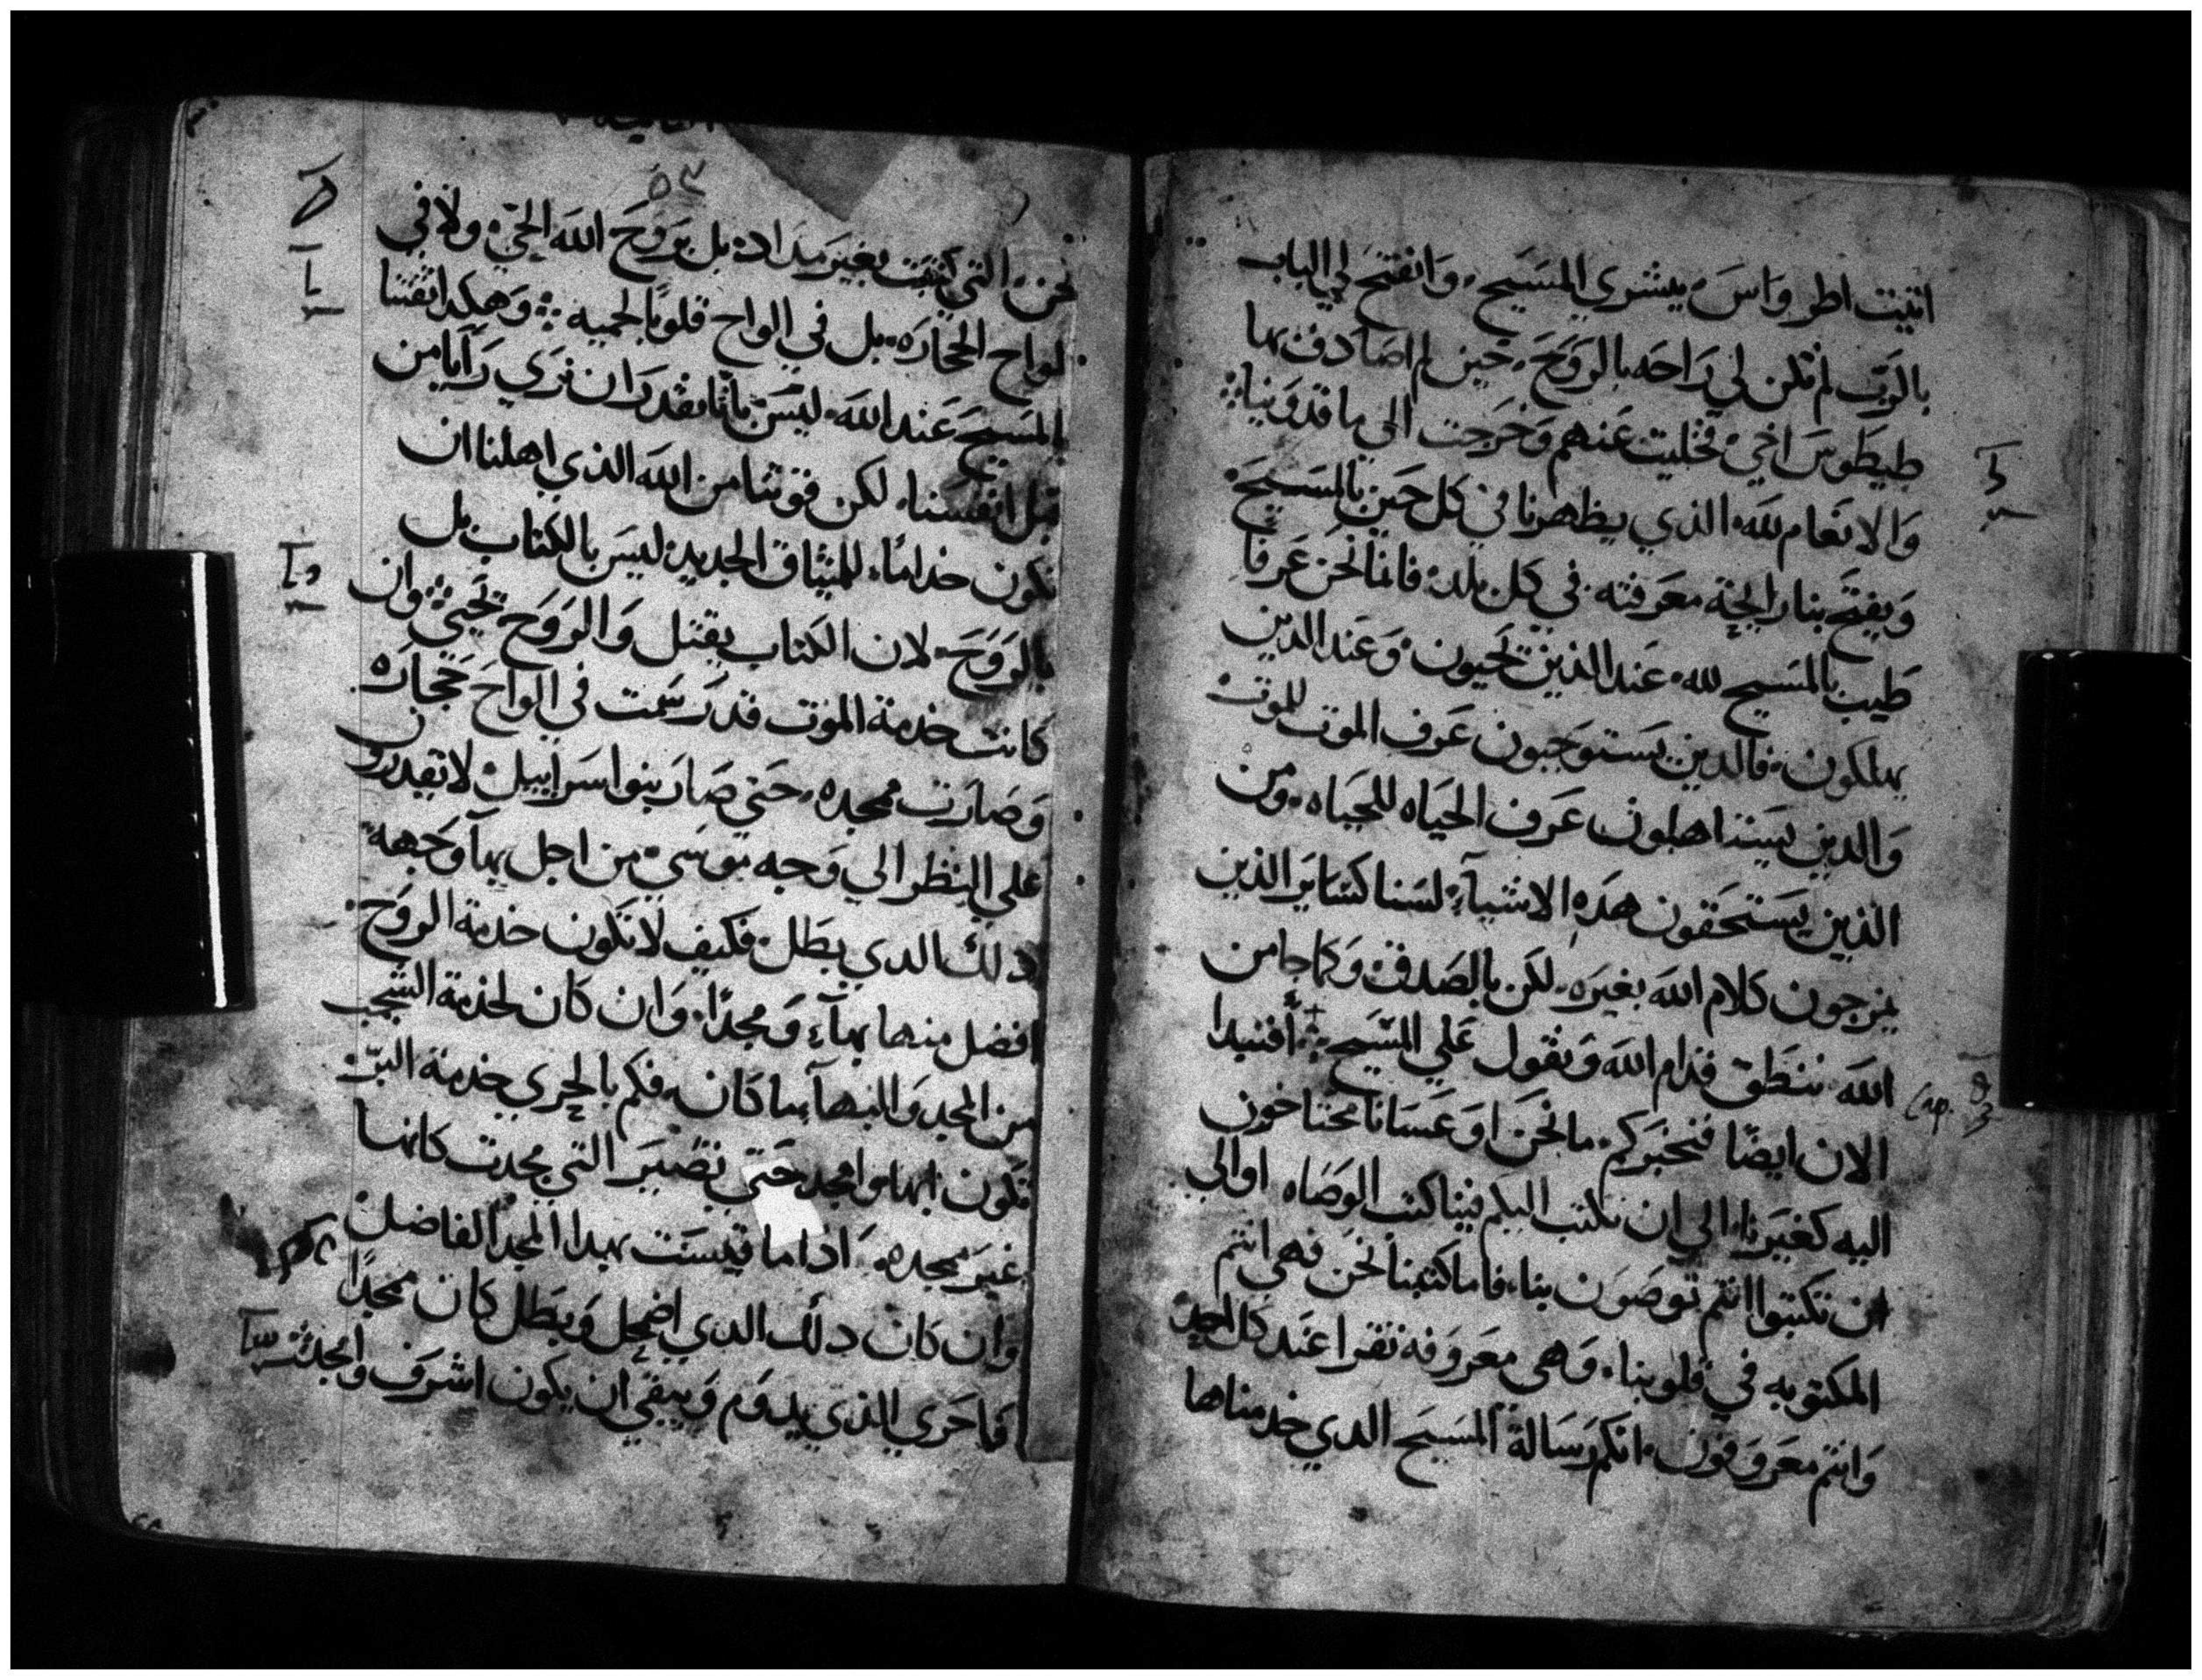 اتيت اطرواس، ببشري المسيح، وانفتح لي الباب
بالرب لم تكن لي راحه بالروح، حين لم اصادف بها
طيطوس اخي، فخليت عنهم وخرجت الى ماقدونيا؛
والانعام لله، الذي يظهرنا في كل حين بالمسيح،
ويفتح بنا رايحة معرفته، في كل بلد، فاننا نحن عرفا
طيب بالمسيح لله، عند الذين يحيون، وعند الدين
يهلكون، فالدين يستوجبون عرف الموت للموت
والدين يستاهلون عرف الحياه للحياه، ومن
الذين يستحقون هده الاشيآء، لسنا كساير الذين
يمزجون كلام الله بغيره، لكن بالصدق، وكما جا من
الله، ننطق قدام الله ونقول علي المسيح؛ أفنبدا
Cap. 3
الان ايضًا فنخبركم، ما نحن او عسانا محتاجون
اليه كغيرنا، الي ان نكتب اليكم فينا كتب الوصاه، او الي
ان تكتبوا انتم توصون بنا، فاما كتبنا نحن فهي انتم
المكتوبه في قلوبنا، وهي معروفه تقرا عند كل احد
وانتم معروفون، انكم رسالة المسيح الدي خدمناها
٥٣
نحن، التي كتبت بغير مداد، بل بروح الله الحي، ولا في
لواح الحجاره، بل في الواح قلوبًا لحميه؛ وهكدا ثقتنا
بالمسيح عند الله، ليس باننا نقدر ان نري رايا من
قبل انفسنا، لكن قوتنا من الله الذي اهلنا ان
نكون خدامًا، للميثاق الجديد، ليس بالكتاب بل
بالروح، لان الكتاب يقتل والروح تحيي؛ وان
كانت خدمة الموت قد رسمت في الواح حجاره
وصارت ممجده، حتي صار بنوا اسراييل لا يقدرون
علي النظر الي وجه موسي، من اجل بهآ وجهه
دلك الدي بطل، فكيف لا تكون خدمة الروح
افضل منها بهآء ومجدًا، وان كان لخدمة الشجب
من المجد والبهآ ما كان، فكم بالحري خدمة البر
تكون ابها وامجد حتي تصير التي مجدت كانها
غير ممجده، اذا ما قيست بهدا المجد الفاضل
وان كان دلك الدي اضمحل وبطل كان ممجدًا
فما حري الذي يدوم ويبقي ان يكون اشرف وامجد